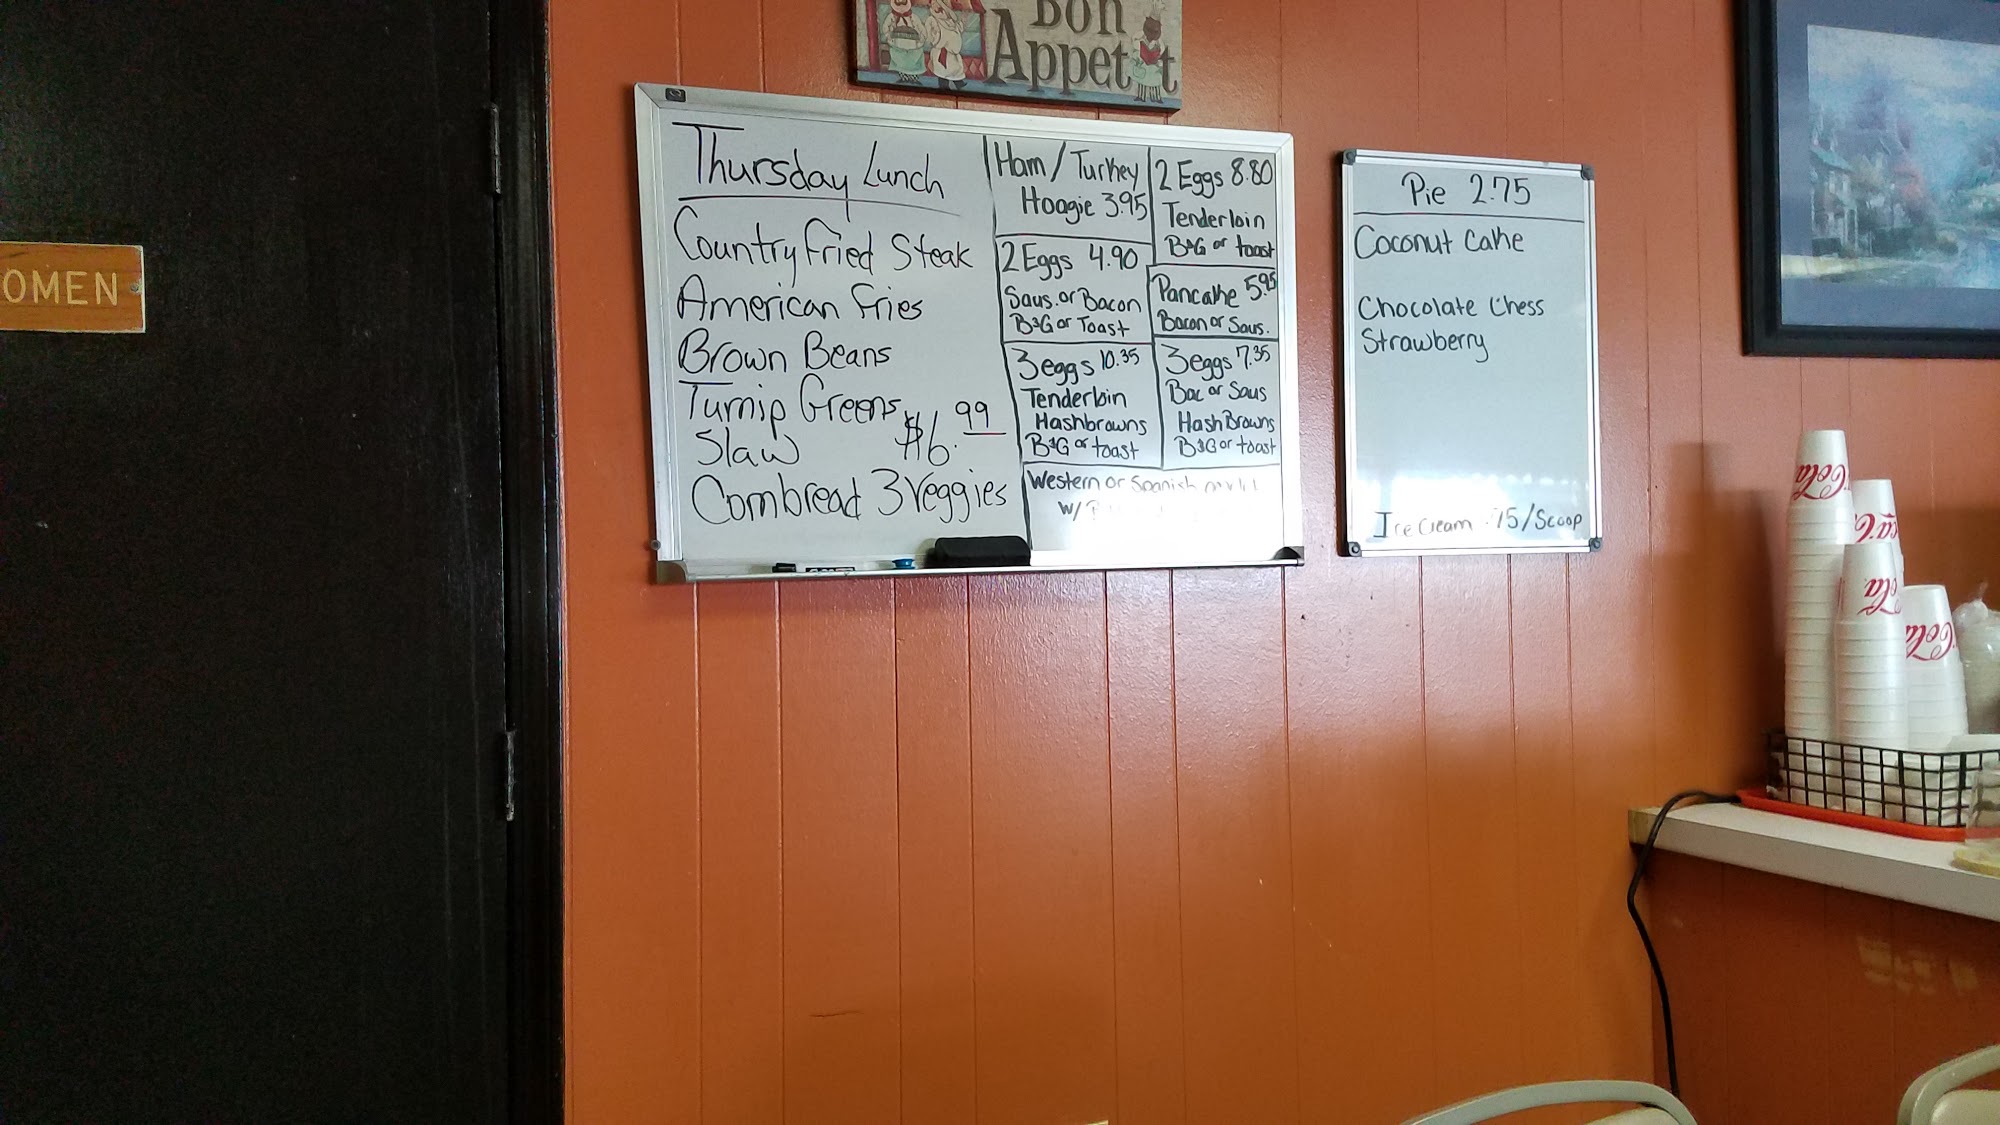 Bon
Appetit
OMEN
Thursday Lunch
Country Fried Steak
American Fries
Brown Beans
Turnip Greens
Slaw $6.99
Cornbread 3 Veggies
Ham / Turkey
Hoagie 3.95
2 Eggs 4.90
Saus. or Bacon
B&G or Toast
3 eggs 10.35
Tenderloin
Hashbrowns
B&G or toast
2 Eggs 8.80
Tenderloin
B&G or toast
Pancake 5.95
Bacon or Saus.
3 eggs 7.35
Bac or Saus
HashBrowns
B&G or toast
Western or Spanish
w/
Pie 2.75
Coconut Cake
Chocolate Chess
Strawberry
Ice Cream .75/Scoop
Cola
Cola
Cola